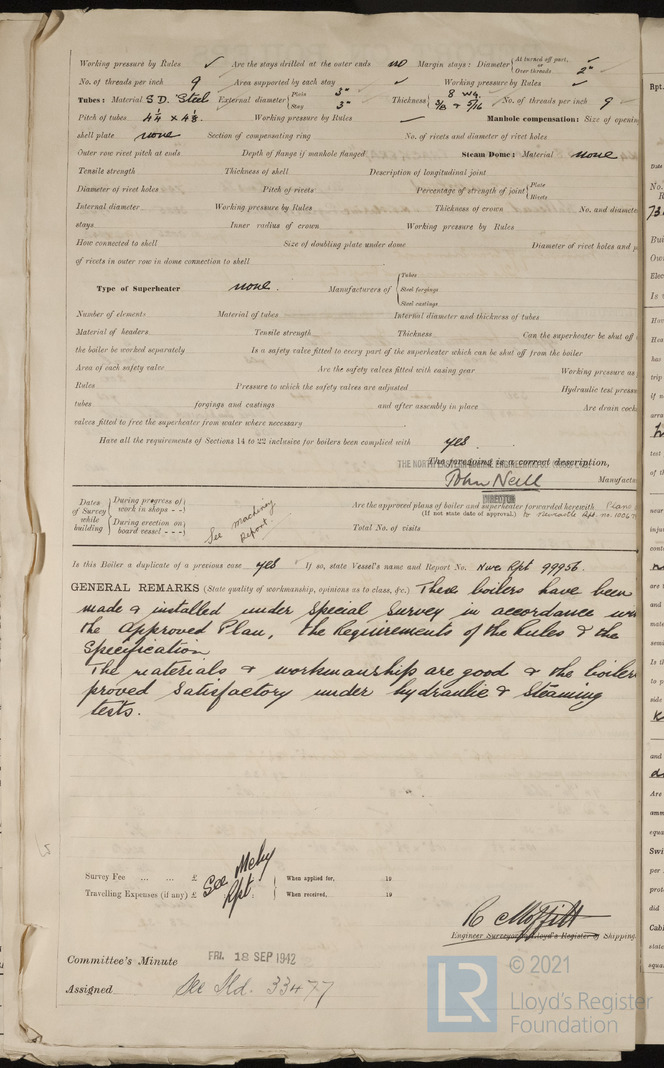 Working pressure by Rules ✓ Are the stays drilled at the outer ends no Margin stays: Diameter { At turned off part, or Over threads 2" ✓
No. of threads per inch 9 Area supported by each stay ✓ Working pressure by Rules ✓
Tubes: Material S.D. Steel External diameter { Plain 3" Stay 3" Thickness { 8 wg. 3/8 & 5/16 No. of threads per inch 9
Pitch of tubes 4¼ x 4⅛. Working pressure by Rules Manhole compensation: Size of opening
shell plate none Section of compensating ring No. of rivets and diameter of rivet holes
Outer row rivet pitch at ends Depth of flange if manhole flanged Steam Dome: Material none
Tensile strength Thickness of shell Description of longitudinal joint
Diameter of rivet holes Pitch of rivets Percentage of strength of joint { Plate Rivets
Internal diameter Working pressure by Rules Thickness of crown No. and diamete
stays Inner radius of crown Working pressure by Rules
How connected to shell Size of doubling plate under dome Diameter of rivet holes and p
of rivets in outer row in dome connection to shell
Type of Superheater none. Manufacturers of { Tubes Steel forgings Steel castings
Number of elements Material of tubes Internal diameter and thickness of tubes
Material of headers Tensile strength Thickness Can the superheater be shut off
the boiler be worked separately Is a safety valve fitted to every part of the superheater which can be shut off from the boiler
Area of each safety valve Are the safety valves fitted with easing gear Working pressure as
Rules Pressure to which the safety valves are adjusted Hydraulic test press
tubes forgings and castings and after assembly in place Are drain cock
valves fitted to free the superheater from water where necessary
Have all the requirements of Sections 14 to 22 inclusive for boilers been complied with yes.
The foregoing is a correct description,
THE NORTH EASTERN MARINE ENGINEERING
John Neill Manufactu
DIRECTOR
Dates of Survey while building { During progress of work in shops - - During erection on board vessel - - -
See machinery Report.
Are the approved plans of boiler and superheater forwarded herewith Plans
(If not state date of approval.)
Total No. of visits
Is this Boiler a duplicate of a previous case yes If so, state Vessel's name and Report No. Nwc Rpt 99956.
GENERAL REMARKS (State quality of workmanship, opinions as to class, &c.) These boilers have been
made & installed under Special Survey in accordance
the Approved Plan, the Requirements of the Rules & the
Specification
The materials & workmanship are good & the boiler
proved satisfactory under hydraulic & steaming
tests.
Survey Fee ... ... £ See Mchy Rpt. When applied for, 19
Travelling Expenses (if any) £ When received, 19
R Moffitt
Engineer Surveyor to Lloyd's Register of Shipping.
Committee's Minute FRI. 18 SEP 1942
Assigned See Sld. 33477
LR © 2021
Lloyd's Register
Foundation